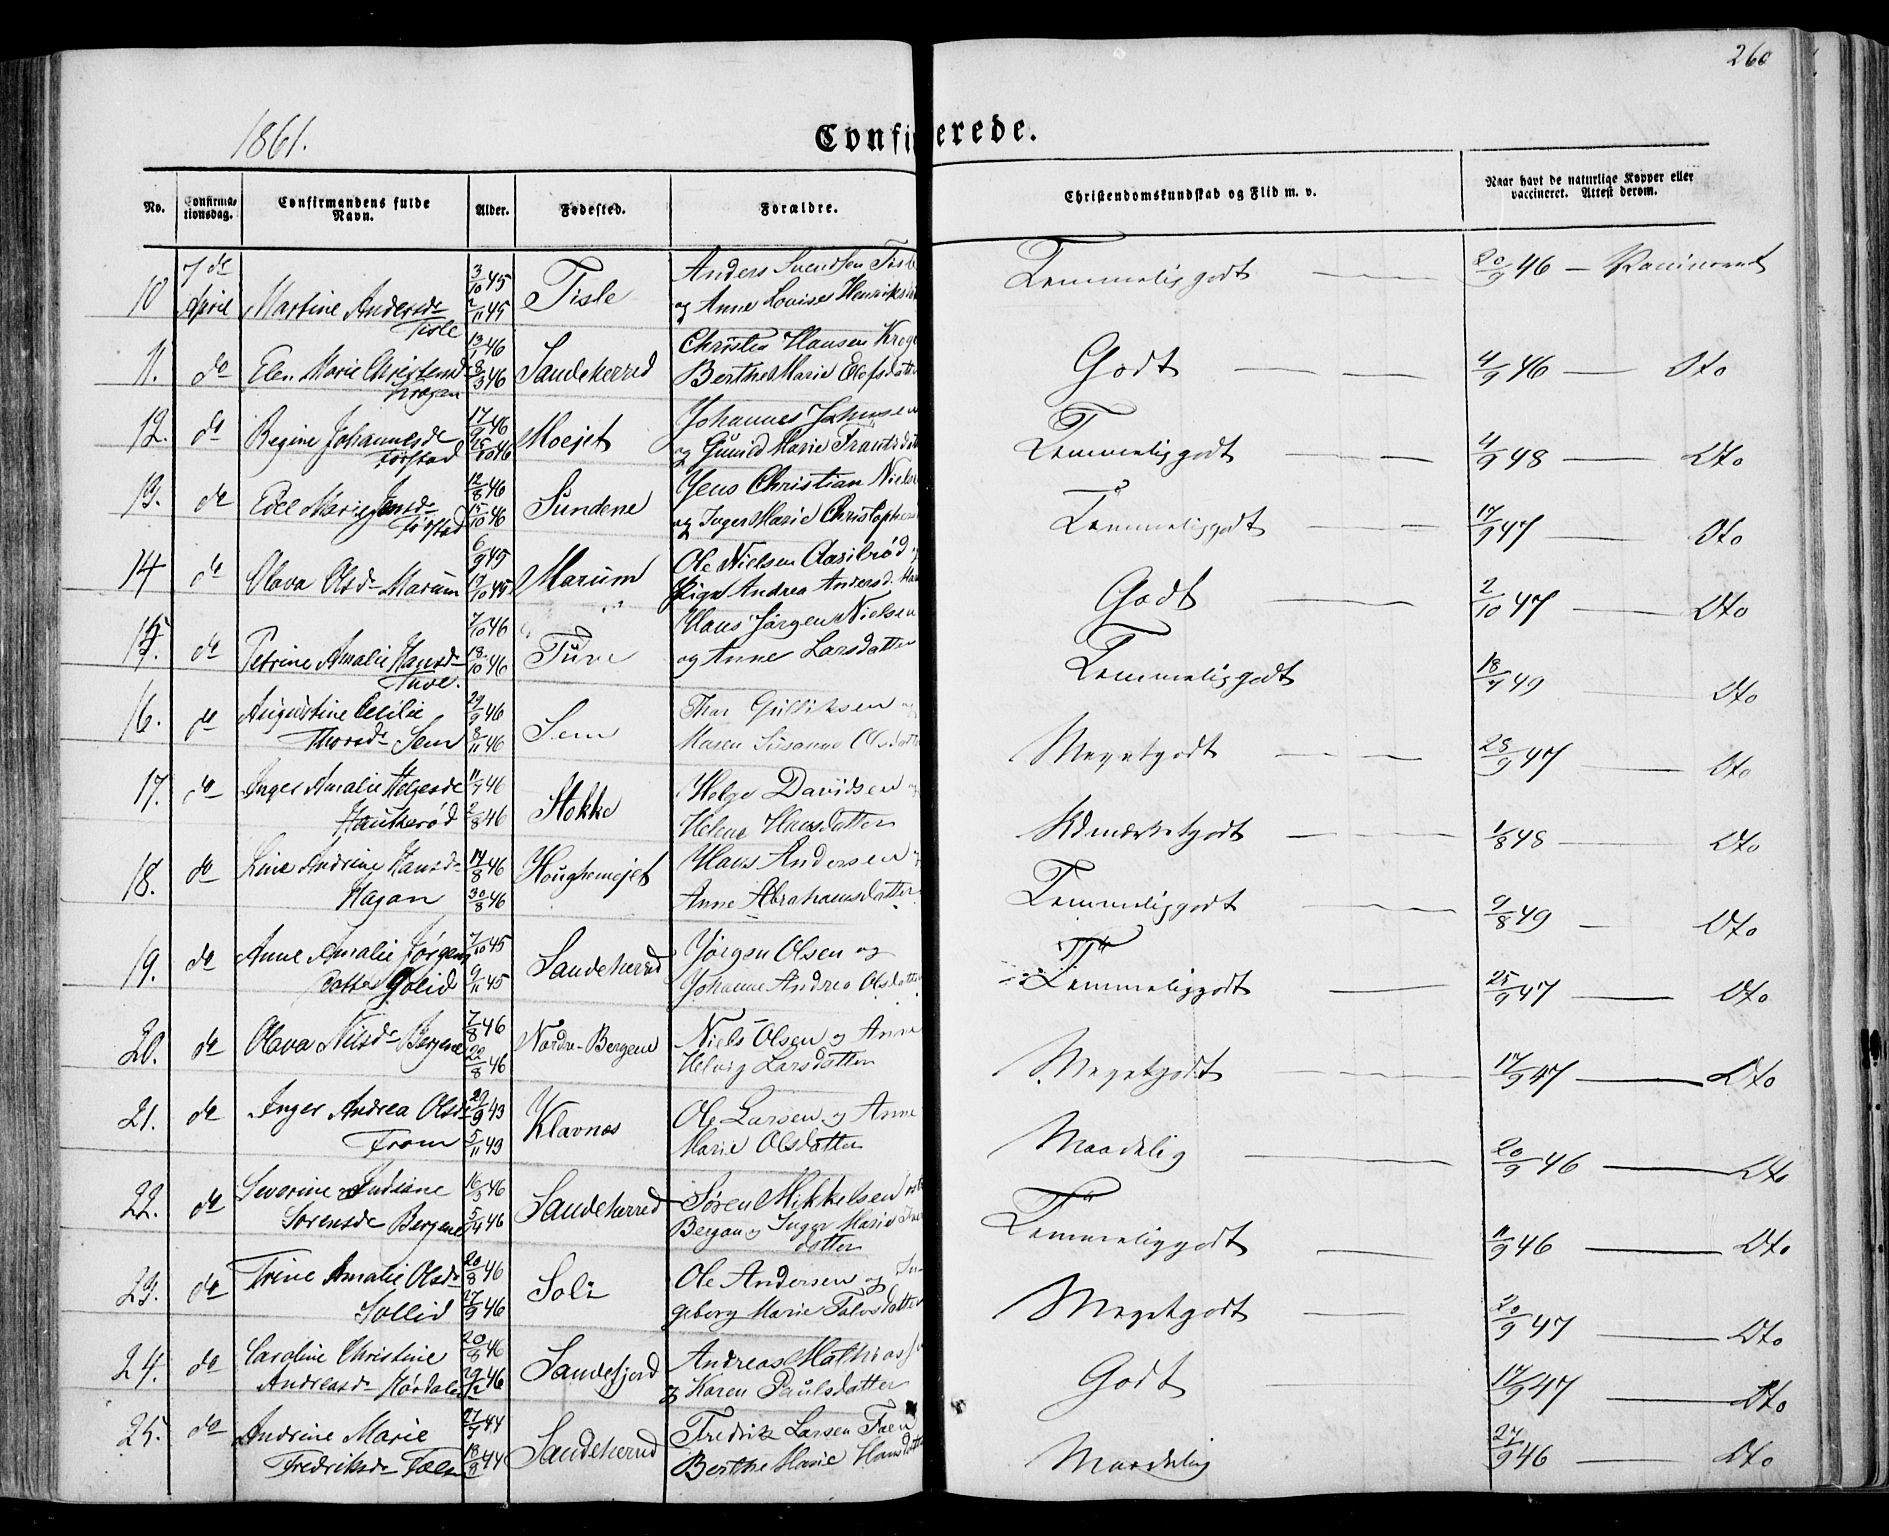 260
1861.
Confirmerede.
No.
Confirma-
tionsdag.
Confirmandens fulde
Navn.
Alder.
Fødested.
Forældre.
Christendomskundskab og Flid m. v.
Naar havt de naturlige Kopper eller
vaccineret. Attest derom.
10 7de April Martine Andersd- Tisle 3/10 45 2/11 45 Tisle Anders Svendsen Tisle
og Anne Lovise Henriksd
Temmelig godt 20/9 46 - Vaccineret
11. do Elen Marie Christensd- Krogen 13/1 46 8/3 46 Sandeherred Christen Hansen Krog
Berthe Marie Olofsdatter
Godt 4/9 46 Dto
12. do Regine Johannesd- 17/9 46 Moejet Johannes
og Gunild Marie Frantsdatt
Temmelig godt 4/9 48 Dto
13. do Edel Marie Jensd- 12/8 46 15/10 46 Sundene Jens Christian Niels
og Inger Marie Christophers
Temmelig godt 17/9 47 Dto
14 do Olava Olsd- Marum 6/9 45 Marum Ole Nielsen
Pige Andrea Andersd.
Godt 2/10 47 Dto
15. do Petrine Amalie Hansd- Tuve. 7/10 46 18/10 46 Tuve Hans Jørgen Nielsen
og Anne Larsdatter
Temmelig godt 18/7 49 Dto
16. do Augustine Cecilie
Thorsd- Sem 8/11 46 Sem Thor Gulliksen og
Maren Susanne Olsdatter
Meget godt 47 Dto
17. do Inger Amalie Helgesd-
Haukerød 2/8 46 Stokke Helge Davidsen og
Helene Hansdatter
Udmærket godt 1/8 48 Dto
18. do Line Andrine Hansd-
Hagan 14/8 46 30/8 46 Hans Andersen og
Anne Abrahamsdatter
Temmelig godt 9/8 49 Dto
19. do Anne Amalie Jørgens
datter 7/10 45 9/11 45 Sandeherred Jørgen Olsen og
Johanne Andrea Olsdatter
Temmelig godt 25/9 47 Dto
20. do Olava Nilsd- Bergene 7/8 46 Nordre-Bergene Niels Olsen og Anne
Helvig Larsdatter
Meget godt 17/9 47 Dto
21. do Inger Andrea Olsd-
From 5/11 43 Klavnes Ole Larsen og Anne
Marie Olsdatter
Maadelig 20/9 46 Dto
22. do Severine
Sørensd- Bergene 5/4 46 Sandeherred Søren Mikkelsen
Bergan og Inger Marie
datter
Temmelig godt 11/9 46 Dto
23. do Trine Amalie Olsd-
Sollid 20/8 46 27/9 46 Soli Ole Andersen og In-
geborg Marie Talvsdatter
Meget godt 20/9 47 Dto
24. do Caroline Christine
Andreasd- 20/8 46 Sandefjord Andreas Mathias
og Karen Paulsdatter
Godt 17/9 47 Dto
25. do Andrine Marie
Fredriksd- Faen 27/7 44 18/8 44 Sandeherred Fredrik Larsen Faen
Berthe Marie Hansdatter
Maadelig 27/9 46 Dto